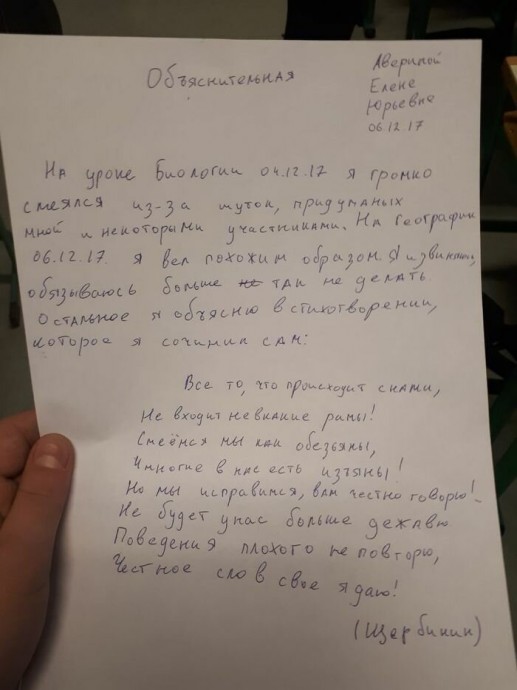 Авериной
Елене
Юрьевне
06.12.17
Объяснительная
На уроке Биологии 04.12.17 я громко
смеялся из-за шуток, придуманых
мной и некоторыми участниками. На географии
06.12.17. я вел похожим образом. Я извиняюсь,
обязываюсь больше не так не делать.
Остальное я объясню в стихотворении,
которое я сочинил сам:
Все то, что происходит снами,
Не входит невкакие рамы!
Смеёмся мы как обезьяны,
И многие в нас есть изъяны!
Но мы исправимся, вам честно говорю!
Не будет унас больше дежавю
Поведения плохого не повторю,
Честное слово свое я даю!
(Щербинин)